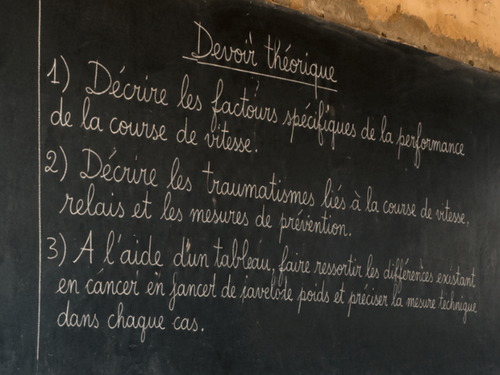 Devoir théorique
1) Décrire les factours spécifiques de la performance
de la course de vitesse.
2) Décrire les traumatismes liés à la course de vitesse,
relais et les mesures de prévention.
3) A l'aide d'un tableau, faire ressortir les différences existant
en cancer en jancer de javelote poids et préciser la mesure technique
dans chaque cas.